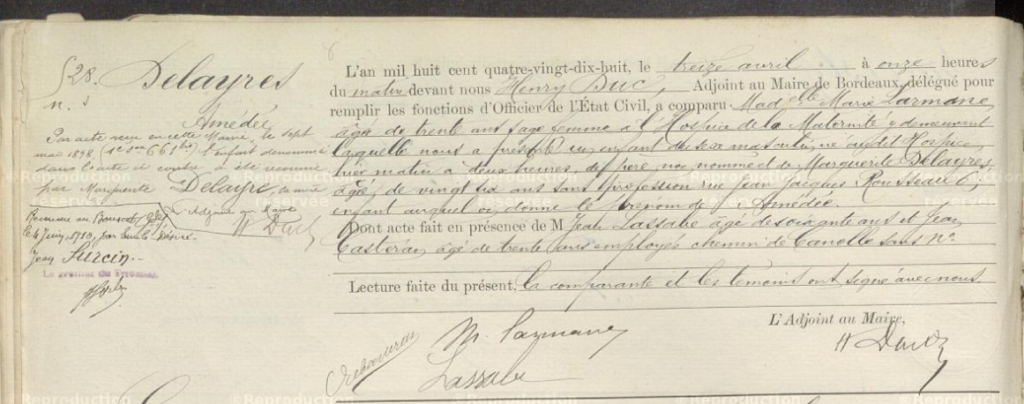 528.
n. s
Delayres
Amédée
Par acte reçu en cette Mairie, le sept
mai 1898 (1e son 661 bis) l'enfant dénommé
dans l'acte ci contre a été reconnu
par Marguerite Delayre, sa mère
L'Adjoint au Maire
H Duc
Reconnu au Bouscat, Gde
le 4 Juin, 1910, par
Jean Furcin.-
Le greffier du Tribunal,
L'an mil huit cent quatre-vingt-dix-huit, le treize avril à onze heures
du matin devant nous Henry Duc, Adjoint au Maire de Bordeaux, délégué pour
remplir les fonctions d'Officier de l'État Civil, a comparu Mad elle Marie Larmane,
âgée de trente ans sage femme à l'Hospice de la Maternité y demeurant
laquelle nous a présenté un enfant du sexe masculin, né au dit Hospice,
hier matin à deux heures, de père non nommé et de Marguerite Delayres
âgée de vingt six ans sans profession rue Jean Jacques Rousseau 6,
enfant auquel on donne le prénom de Amédée.
Dont acte fait en présence de M Jean Lassabe âgé de soixante ans et Jean
Casteran âgé de trente ans employés chemin de Canolle sans No
Lecture faite du présent, la comparante et les témoins ont signé avec nous.
L'Adjoint au Maire,
M. Larmane
H Duc
Lassabe